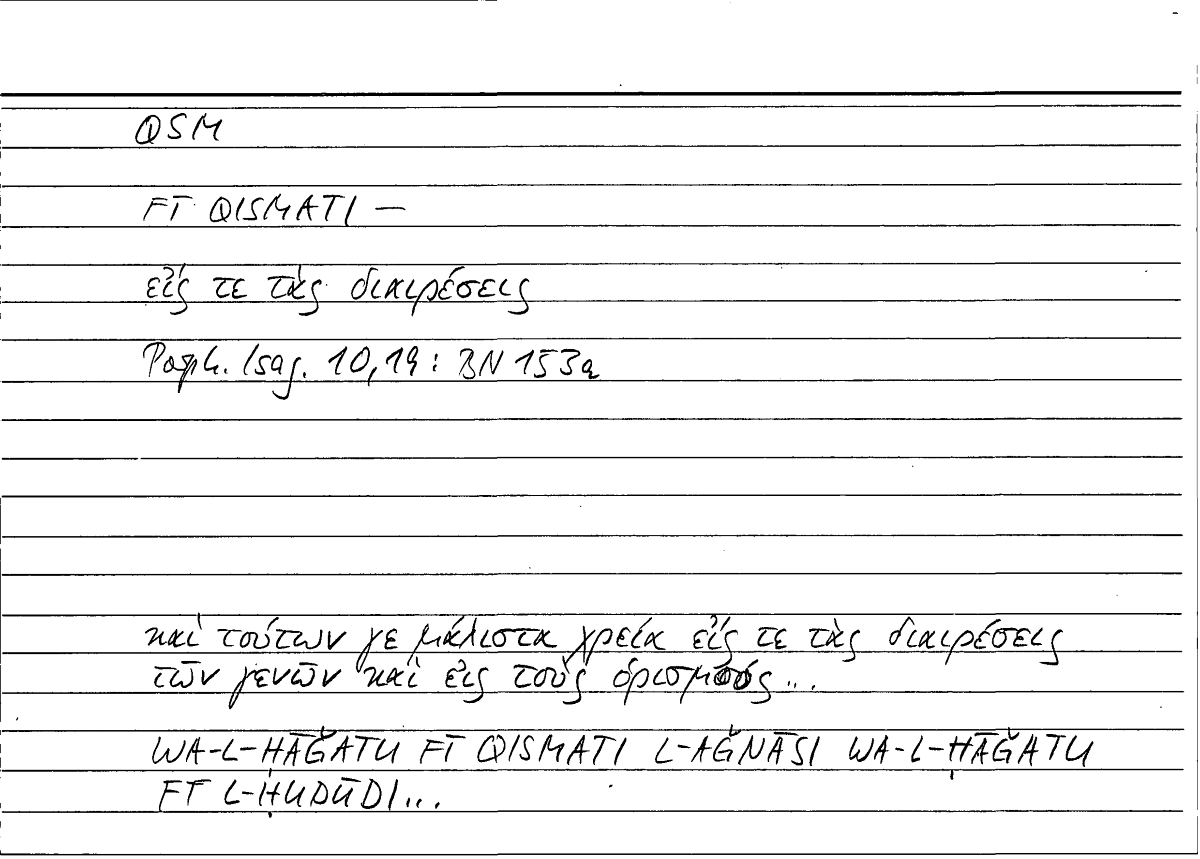 QSM
FĪ QISMATI —
εἴς τε τὰς διαιρέσεις
Porph. Isag. 10,19 : BN 153a
καὶ τούτων γε μάλιστα χρεία εἴς τε τὰς διαιρέσεις
τῶν γενῶν καὶ εἰς τοὺς ὁρισμούς...
WA-L-ḤĀǦATU FĪ QISMATI L-AǦNĀSI WA-L-ḤĀǦATU
FĪ L-ḤUDŪDI...